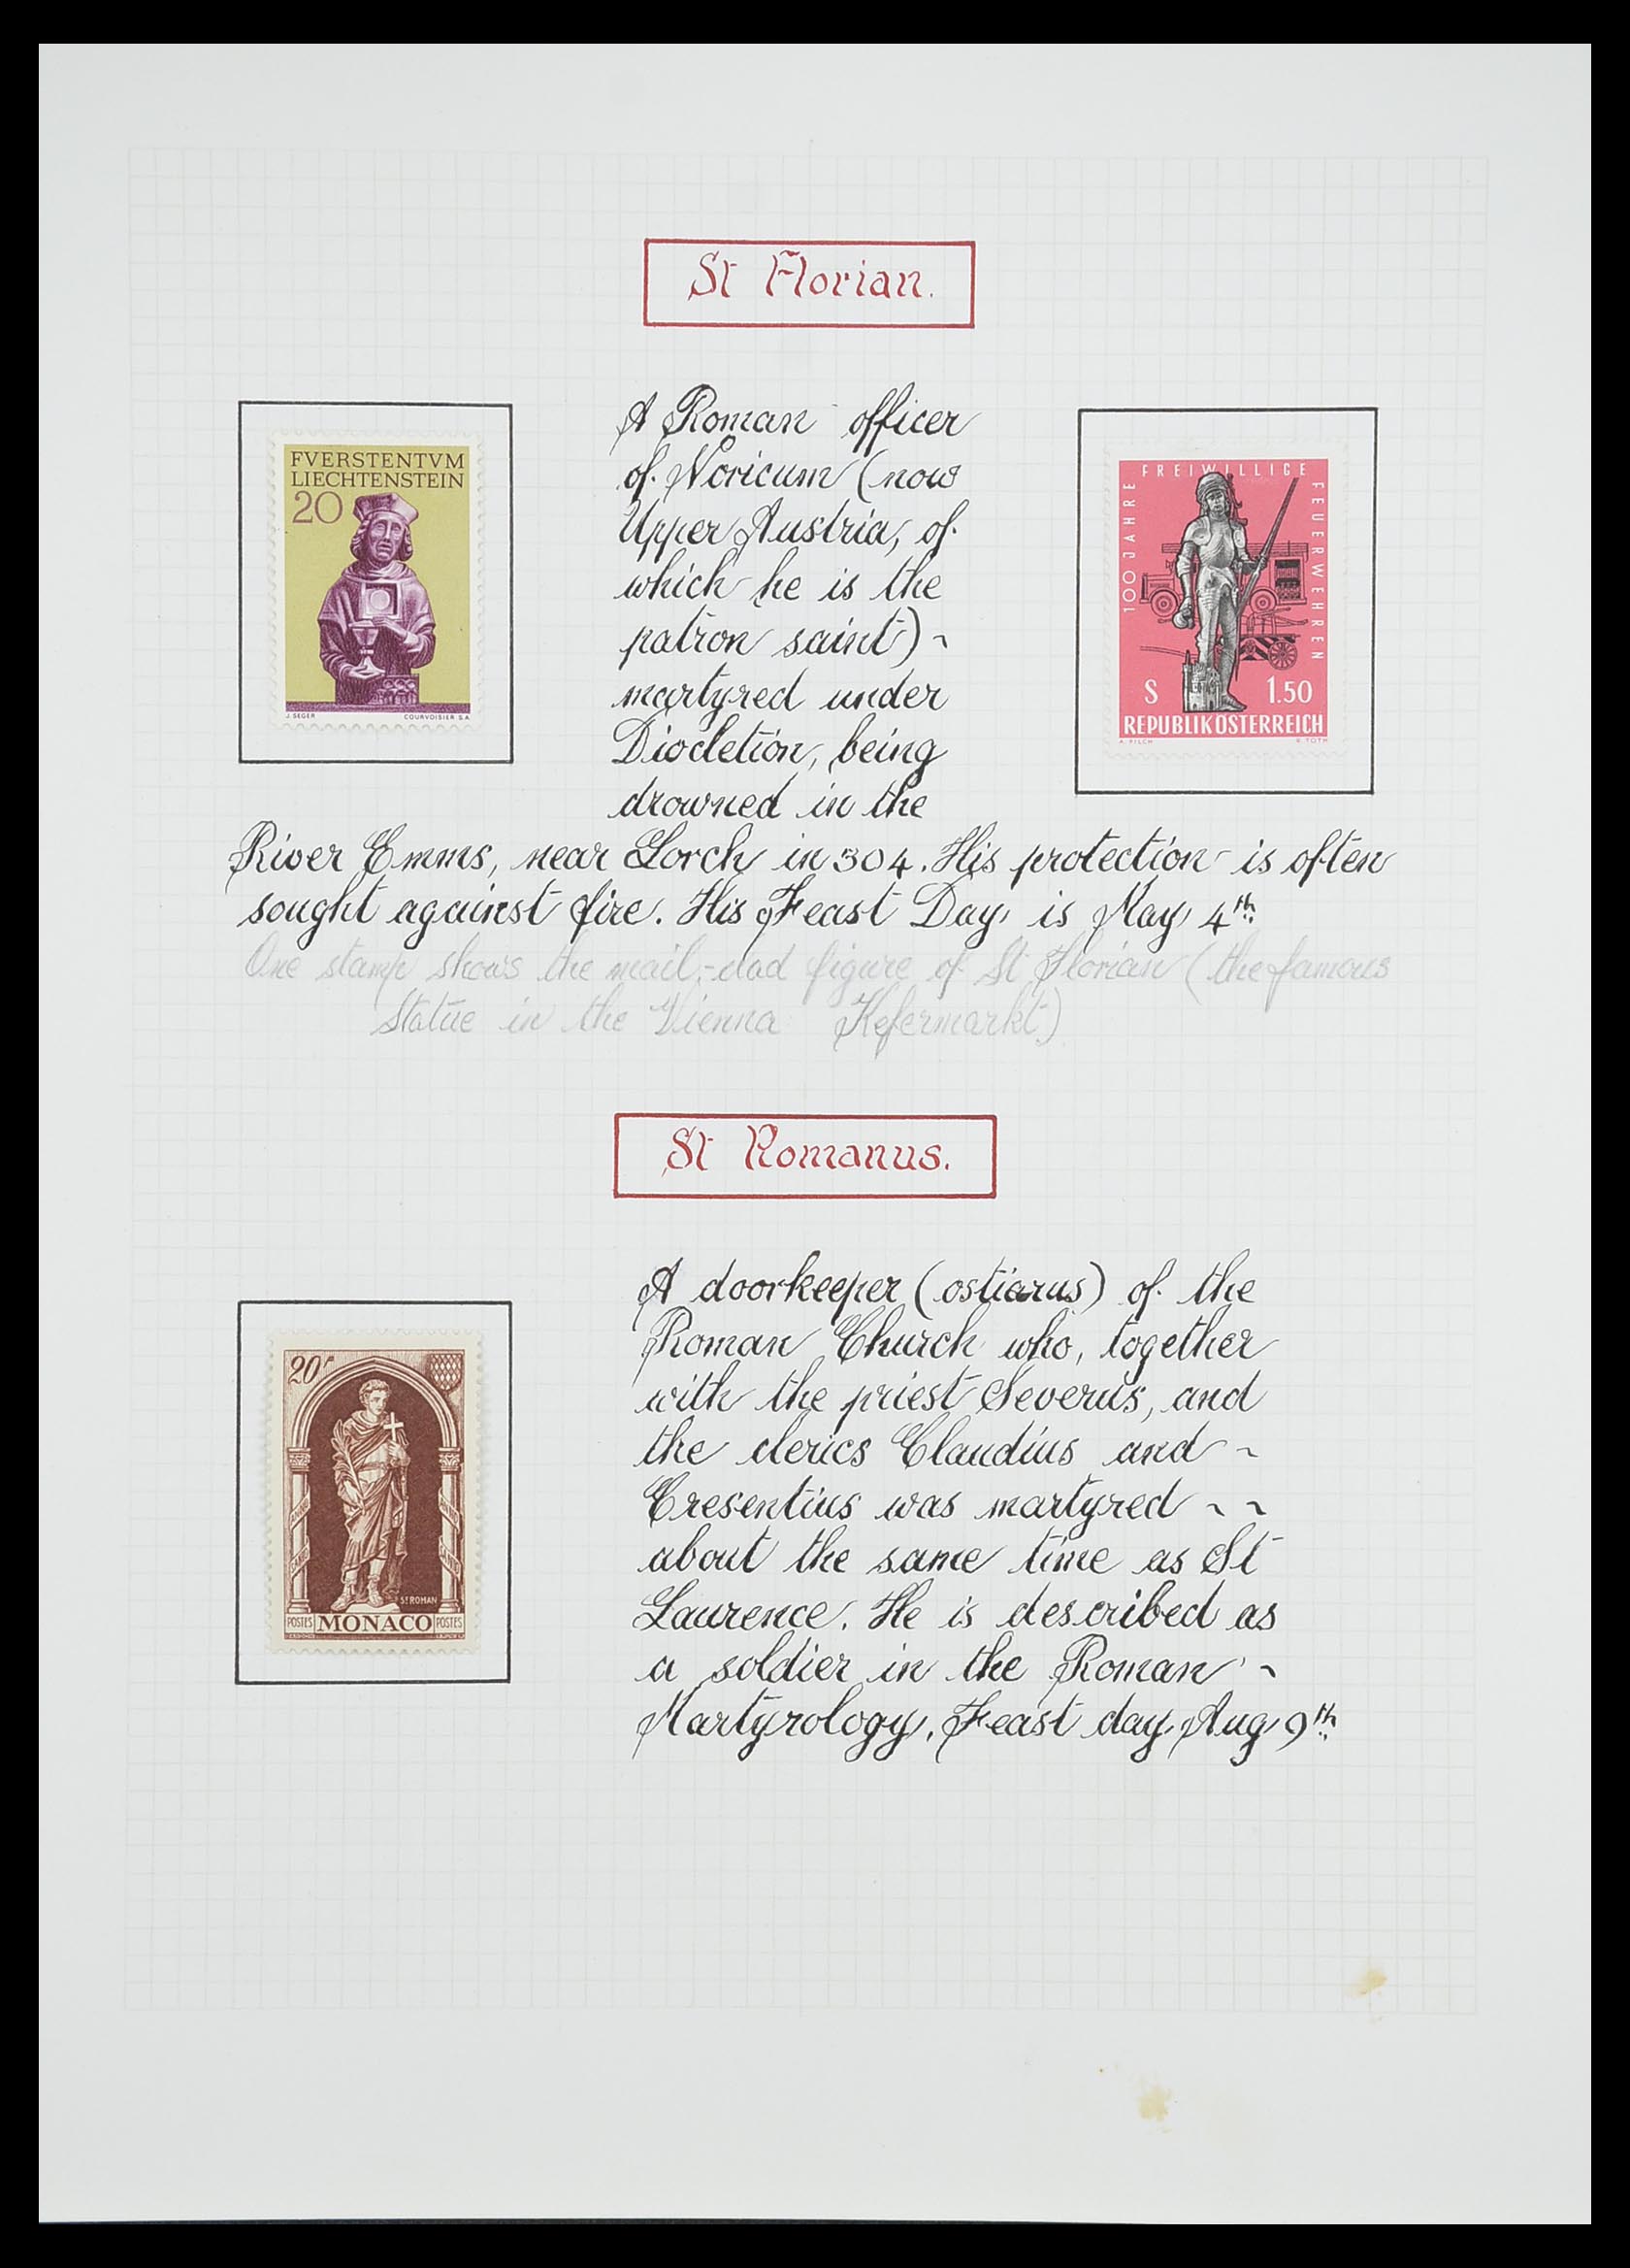 St Florian.
FVERSTENTVM
LIECHTENSTEIN
20
J. SEGER COURVOISIER S.A.
A Roman officer
of Noricum (now
Upper Austria, of
which he is the
patron saint) ~
martyred under
Diocletion, being
drowned in the
River Emms, near Lorch in 304. His protection is often
sought against fire. His Feast Day is May 4th.
One stamp shows the mail-clad figure of St Florian (the famous
Statue in the Vienna Kefermarkt)
100 JAHRE FREIWILLIGE FEUERWEHREN
S 1.50
REPUBLIK ÖSTERREICH
A. PILCH R. TOTH
St Romanus.
20F
ST ROMAN
POSTES MONACO POSTES
A doorkeeper (ostiarus) of the
Roman Church who, together
with the priest Severus, and
the clerics Claudius and ~
Cresentius was martyred ~ ~
about the same time as St
Laurence. He is described as
a soldier in the Roman ~
Martyrology. Feast day Aug 9th.